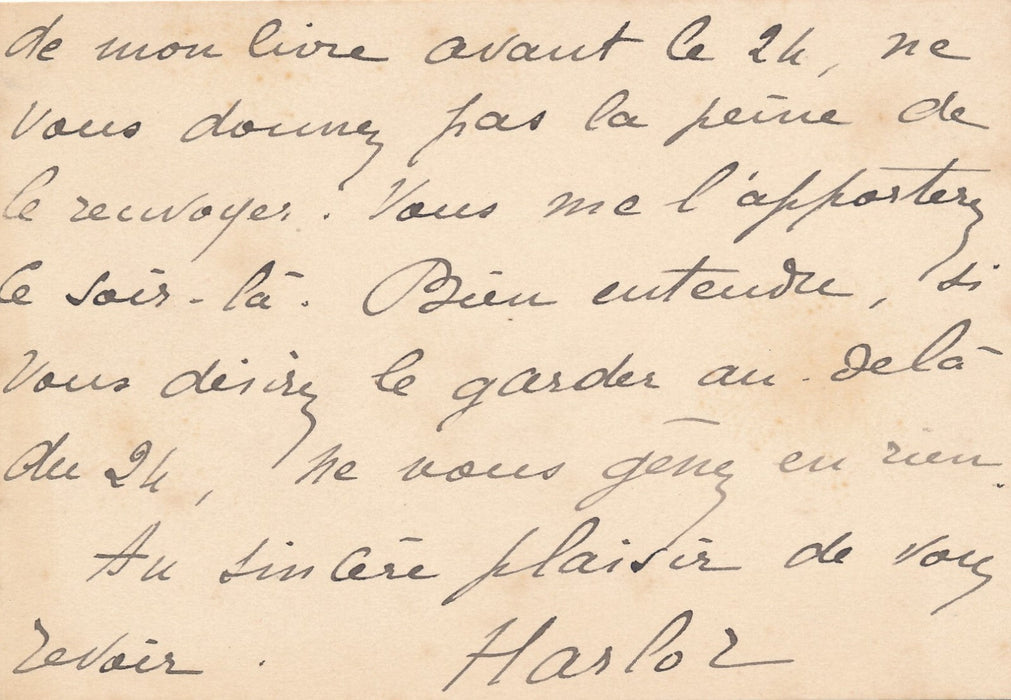 de mon livre avant le 24, ne
vous donnez pas la peine de
le renvoyer. Vous me l'apporterez
ce soir-là. Bien entendu, si
vous désirez le garder au-delà
du 24, ne vous gênez en rien.
Au sincère plaisir de vous
revoir. Harlor